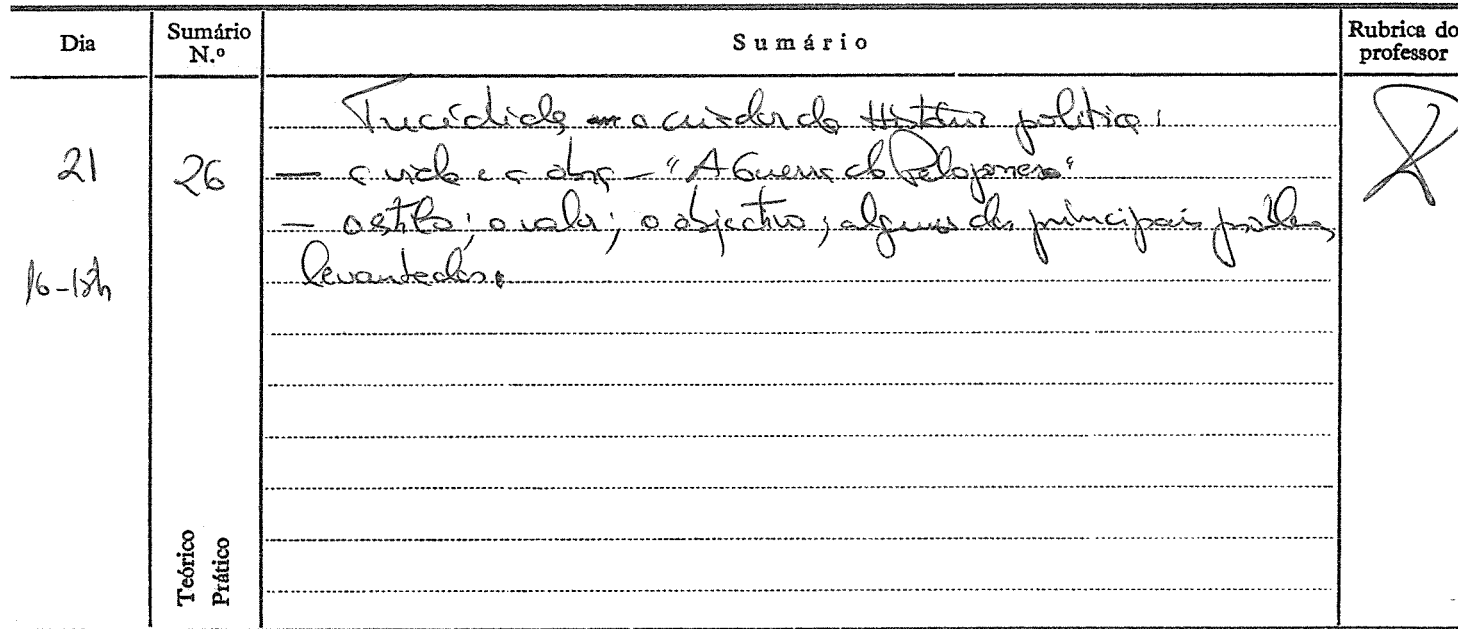 Dia
Sumário N.º
Sumário
Rubrica do professor
21
26
16-18h
Tucídides — o criador da História política:
— a vida e a obra — "A Guerra do Peloponeso"
— o estilo; o valor; o objectivo; alguns dos principais problemas
levantados.
Teórico
Prático